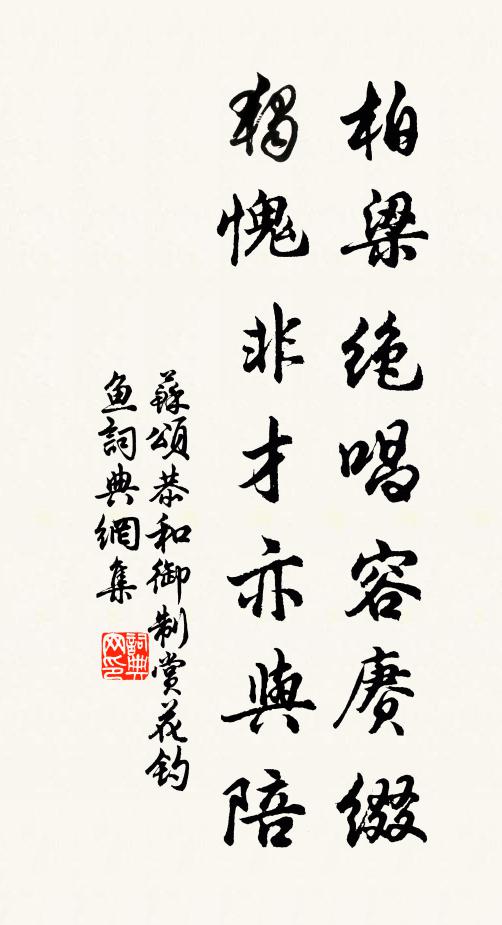 柏梁绝唱容赓缀
独愧非才亦與陪
蘇頌恭和御制赏花钓
鱼詞典網集
詞典网印